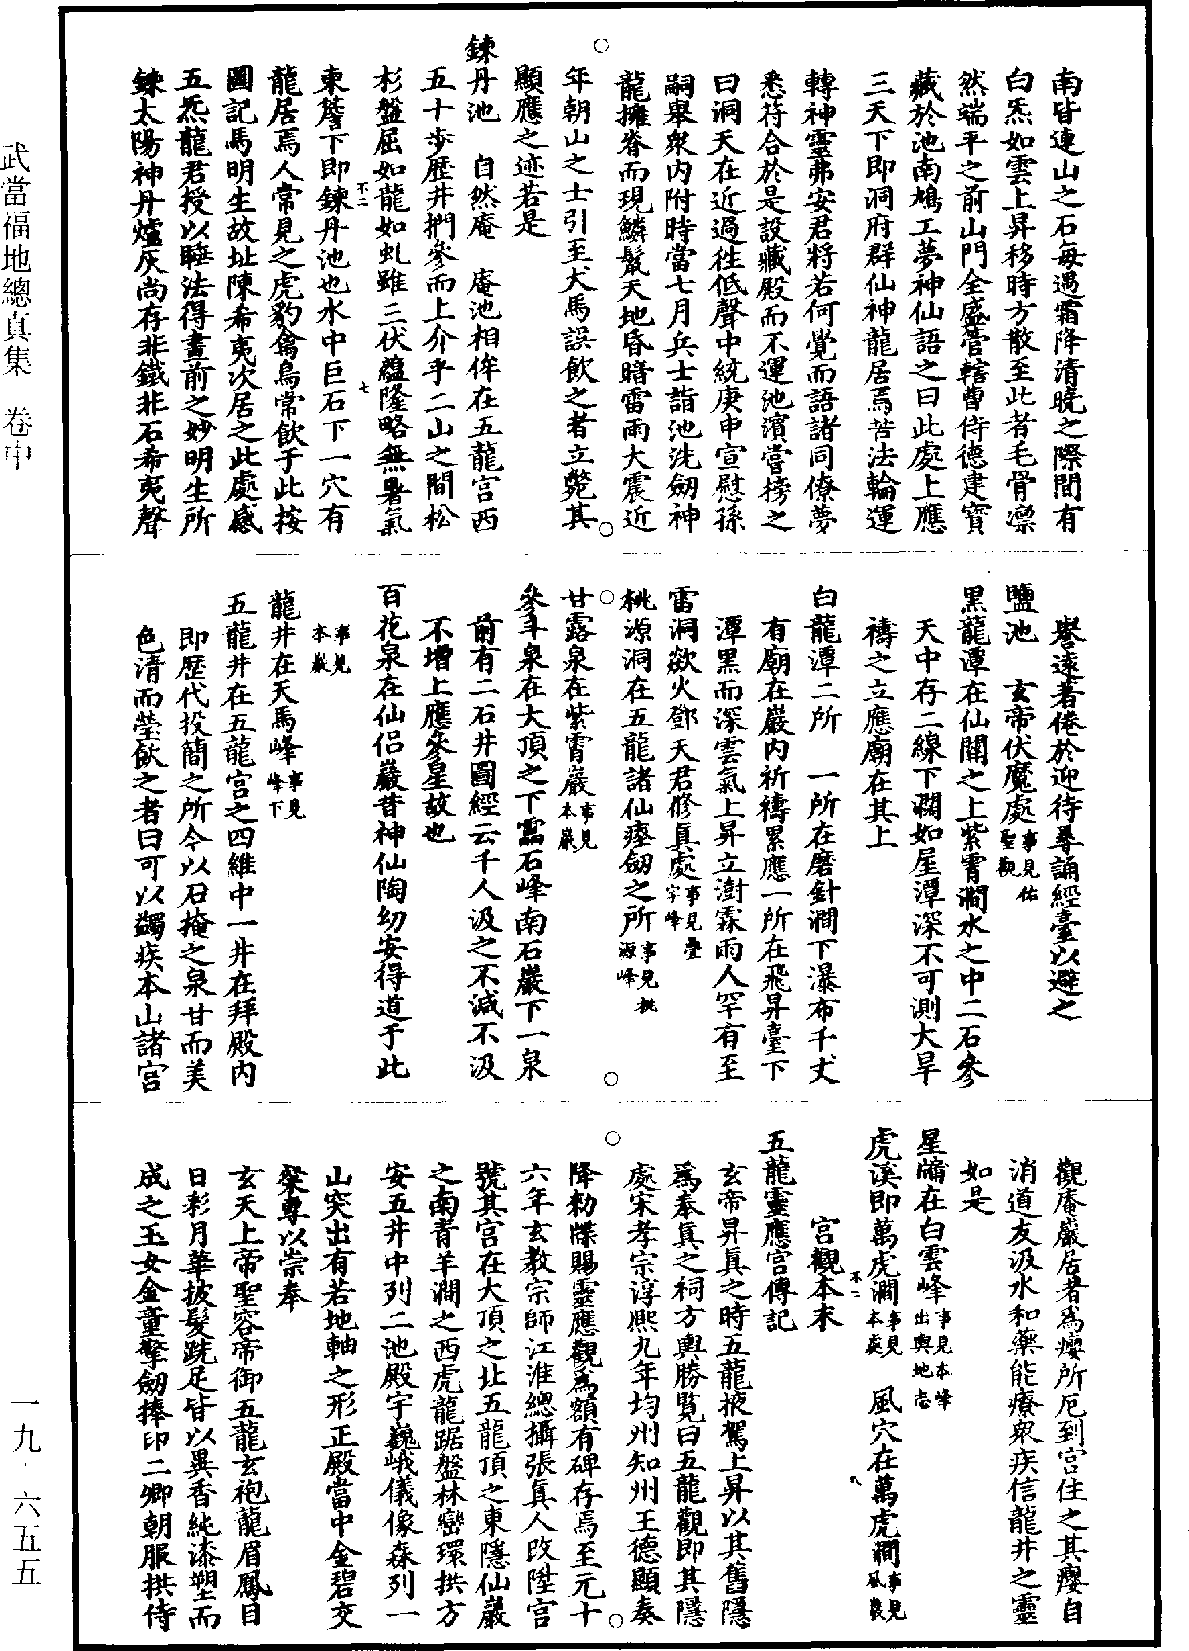 南皆連山之石每遇霜降清曉之際間有
白炁如雲上昇移時方散至此者毛骨凛
然端平之前山門全盛管轄曹侍德建寶
藏於池南鳩工夢神仙語之曰此處上應
三天下即洞府群仙神龍居焉苦法輪運
轉神靈弗安君將若何覺而語諸同僚夢
悉符合於是設藏殿而不運池濱嘗榜之
曰洞天在近過徃低聲中統庚申宣慰孫
嗣舉衆内附時當七月兵士詣池洗劒神
龍擁脊而現鱗鬣天地昏暗雷雨大震近
年朝山之士引至犬馬誤飲之者立斃其
顯應之迹若是
鍊丹池　自然庵　庵池相侔在五龍宫西
五十步歷井捫參而上介乎二山之間松
杉盤屈如龍如虬雖三伏藴隆略無暑氣
東簷下即鍊丹池也水中巨石下一穴有
龍居焉人常見之虎豹禽鳥常飲于此按
圖記馬明生故址陳希夷次居之此處感
五炁龍君授以睡法得畫前之妙明生所
鍊太陽神丹爐灰尚存非鐵非石希夷聲
譽遠著倦於迎待尋誦經臺以避之
鹽池　玄帝伏魔處事見佑聖觀
黑龍潭在仙關之上紫霄澗水之中二石參
天中存二線下澗如屋潭深不可測大旱
禱之立應廟在其上
白龍潭二所　一所在磨針澗下瀑布千丈
有廟在巖内祈禱累應一所在飛昇臺下
潭黑而深雲氣上昇立澍霖雨人罕有至
雷洞歘火鄧天君修真處事見疊字峰
桃源洞在五龍諸仙瘞劒之所事見桃源峰
甘露泉在紫霄巖事見本巖
參斗泉在大頂之下靁石峰南石巖下一泉
前有二石井圖經云千人汲之不減不汲
不增上應參星故也
百花泉在仙侣巖昔神仙陶幼安得道于此
事見本巖
龍井在天馬峰事見峰下
五龍井在五龍宫之四維中一井在拜殿内
即歷代投簡之所令以石掩之泉甘而美
色清而瑩飲之者曰可以蠲疾本山諸宫
觀庵巖居者爲瘿所厄到宫住之其瘿自
消道友汲水和藥能療衆疾信龍井之靈
如是
星牖在白雲峰事見本峰出輿地志
虎溪即萬虎澗事見本處　風穴在萬虎澗事見風巖
宫觀本末
五龍靈應宫傳記
玄帝昇真之時五龍掖駕上昇以其舊隱
爲奉真之祠方輿勝覧曰五龍觀即其隱
處宋孝宗淳熙九年均州知州王德顯奏
降勑牒賜靈應觀爲額有碑存焉至元十
六年玄教宗師江淮總攝張真人改陞宫
號其宫在大頂之北五龍頂之東隱仙巖
之南青羊澗之西虎龍踞盤林巒環拱方
安五井中列二池殿宇巍峨儀像森列一
山突出有若地軸之形正殿當中金碧交
粲尊以崇奉
玄天上帝聖容帝御五龍玄袍龍眉鳳目
日彩月華披髮跣足皆以異香純漆塑而
成之玉女金童擎劒捧印二卿朝服拱侍
不二　七
不二　八
武當福地總真集　卷中
一九·六五五